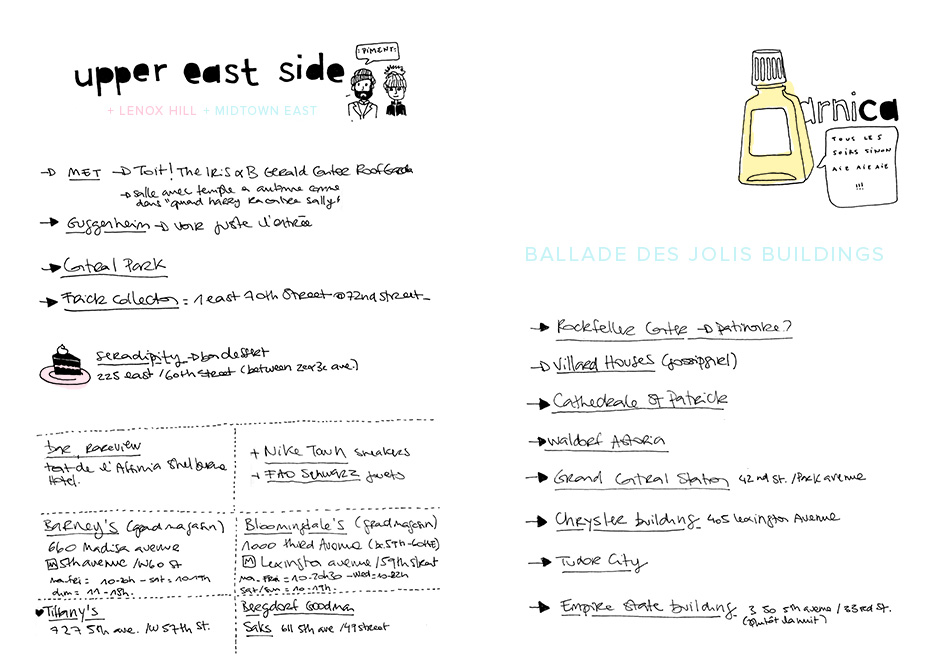 :PIMENT:
upper east side
+ LENOX HILL + MIDTOWN EAST
MET → Toit! The Iris & B Gerald Canter Roof Garden
→ salle avec temple à automne comme
dans "quand harry rencontre sally"
Guggenheim → voir juste l'entrée
Central Park
Frick Collection = 1 east 70th Street → 72nd street
Serendipity → bon dessert
225 east /60th street (between 2e&3e ave.)
bar, Rareview
toit de l'Affinia Shelburne
Hotel.
+ Nike Town sneakers
+ FAO Schwarz jouets
Barney's (grand magasin)
660 Madison avenue
M 5th avenue /W60 St
Mon-Fri = 10-20h - sat = 10-19h
dim = 11-18h.
Bloomingdale's (grand magasin)
1000 third Avenue (b. 59th-60th E)
M Lexington avenue /59th street
Ma. Fri = 10-20h30 - Wed = 10-22h
Sat/sun = 10-19h.
♥ Tiffany's
727 5th ave. /W 57th St.
Bergdorf Goodman
Saks 611 5th ave /49 street
arnica
TOUS LES
SOIRS SINON
AIE AIE AIE
!!!
BALLADE DES JOLIS BUILDINGS
Rockfeller Center → patinoire?
Villard Houses (gossipgirl)
Cathedrale St Patrick
Waldorf Astoria
Grand Central Station 42nd St. /Park avenue
Chrysler building 405 lexington Avenue
Tudor City
Empire State building 350 5th avenue / 33rd St.
(plutôt la nuit)